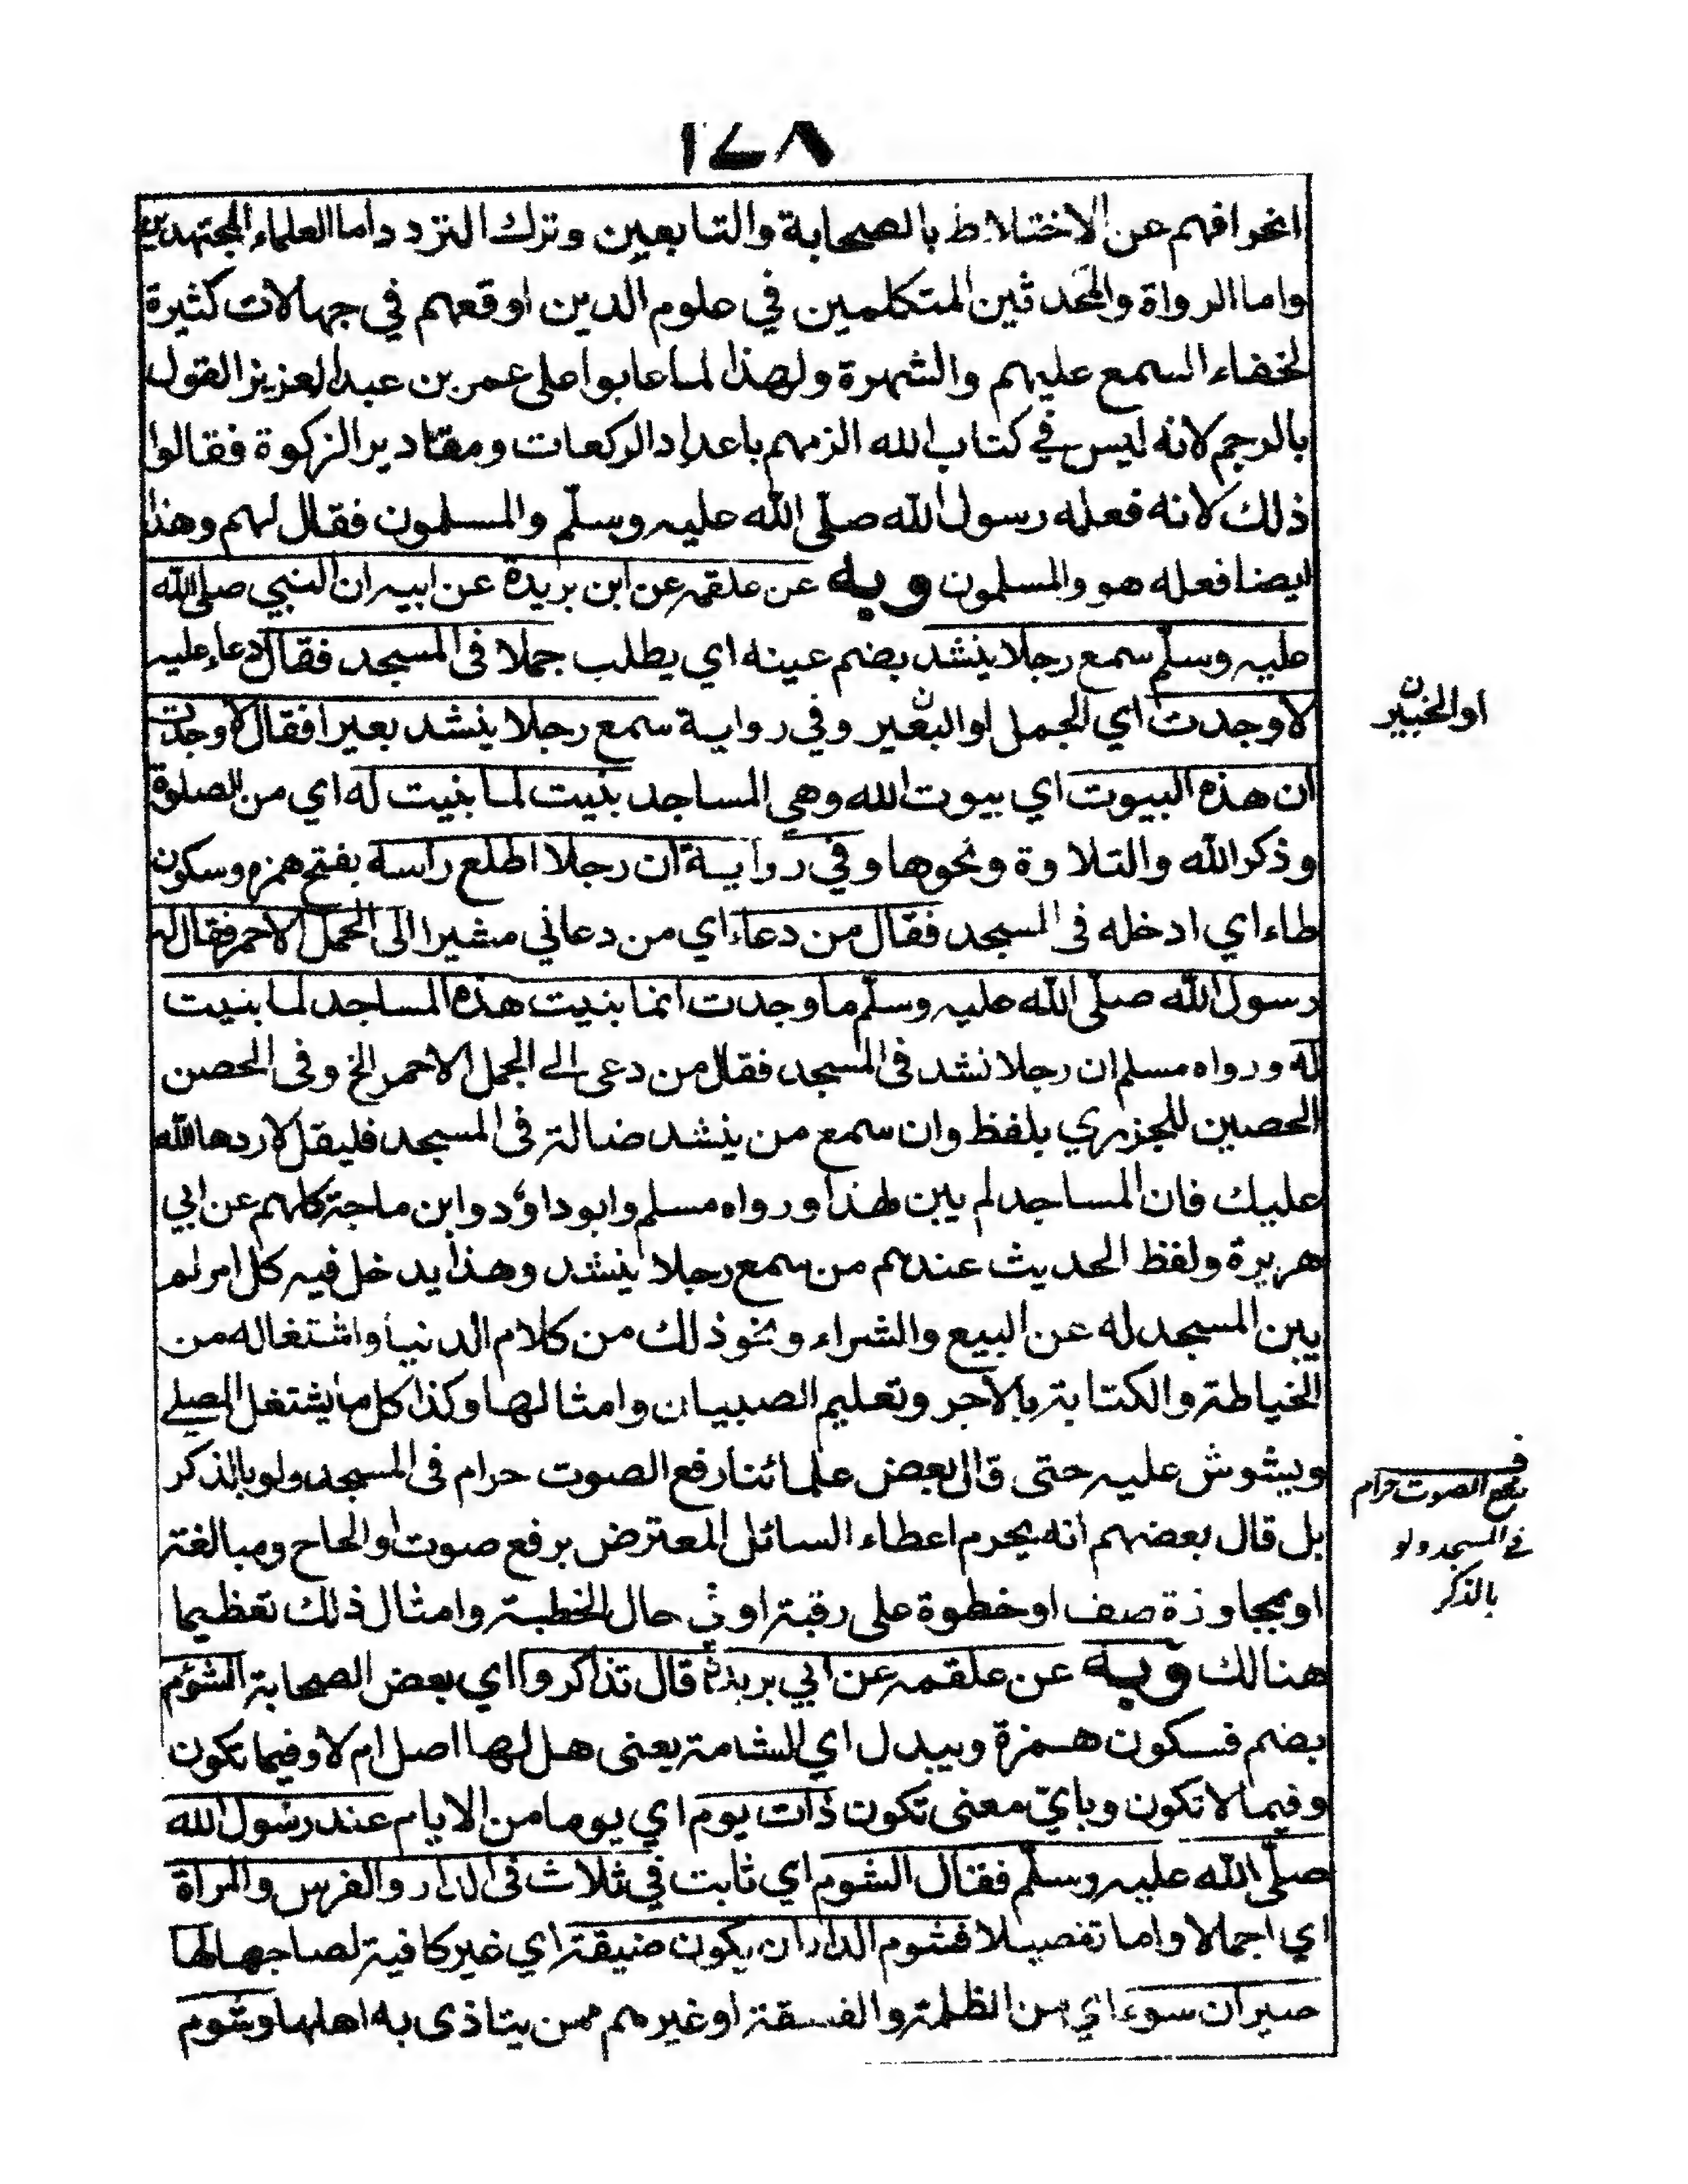 ١٤٨
انحرافهم عن الاختلاط بالصحابة والتابعين وترك التردد داما العلماء المجتهدين
واما الرواة والمحدثين المتكلمين في علوم الدين اوقعهم في جهالات كثيرة
لخفاء السمع عليهم والشهرة ولهذا لما عابوا على عمر بن عبد العزيز القول
بالرجم لانه ليس في كتاب الله الزمهم باعداد الركعات ومقادير الزكوة فقالوا
ذلك لانه فعله رسول الله صلّى الله عليه وسلّم والمسلمون فقال لهم وهذا
ايضا فعله هو والمسلمون وبه عن علقمه عن ابن بريدة عن ابيه ان النبي صلى الله
عليه وسلّم سمع رجلا ينشد بضم عينه اي يطلب جملا فى المسجد فقال دعاء عليه
لاوجدت اي الجمل اوالبعير وفي رواية سمع رجلا ينشد بعيرا فقال لاوجدت
ان هذه البيوت اي بيوت الله وهي المساجد بنيت لما بنيت له اي من الصلوة
وذكر الله والتلاوة ونحوها وفي رواية ان رجلا اطلع راسه بفتح همزه وسكون
طاء اي ادخله فى المسجد فقال من دعاء اي من دعاني مشيرا الى الجمل الاحمر فقال له
رسول الله صلّى الله عليه وسلّم ما وجدت انما بنيت هذه المساجد لما بنيت
له ورواه مسلم ان رجلا نشد فى المسجد فقال من دعى الے الجمل الاحمر الخ وفى الحصن
الحصين للجزري بلفظ وان سمع من ينشد ضالة فى المسجد فليقل لاردها الله
عليك فان المساجد لم يبن لهذا ورواه مسلم وابوداؤد وابن ماجة كلهم عن ابي
هريرة ولفظ الحديث عندهم من سمع رجلا ينشد وهذا يدخل فيه كل امر لم
يبن المسجد له عن البيع والشراء ونحو ذلك من كلام الدنيا واشتغاله من
الخياطة والكتابة بالاجر وتعليم الصبيان وامثالها وكذا كل ما يشتغل المصلے
ويشوش عليه حتى قال بعض علمائنا رفع الصوت حرام فى المسجد ولو بالذكر
بل قال بعضهم انه يحرم اعطاء السائل المعترض برفع صوت او الحاح ومبالغة
او بمجاوزة صف او خطوة على رقبة او فى حال الخطبة وامثال ذلك تعظيما
هنالك وبه عن علقمه عن ابي بريدة قال تذاكروا اي بعض الصحابة الشؤم
بضم فسكون همزة ويبدل اي للشامة يعنى هل لها اصل ام لا وفيما تكون
وفيما لا تكون وبايّ معنى تكون ذات يوم اي يوما من الايام عند رسول الله
صلّى الله عليه وسلّم فقال الشوم اي ثابت في ثلاث فى الدار والفرس والمراة
اي اجمالا واما تفصيلا فشوم الدار ان يكون ضيقة اي غير كافية لصاحبها لها
جيران سوء اي من الظلمة والفسقة او غيرهم ممن يتاذى به اهلها وشوم
اوالخبير
ن
ف
رفع الصوت حرام
في المسجد ولو
بالذكر